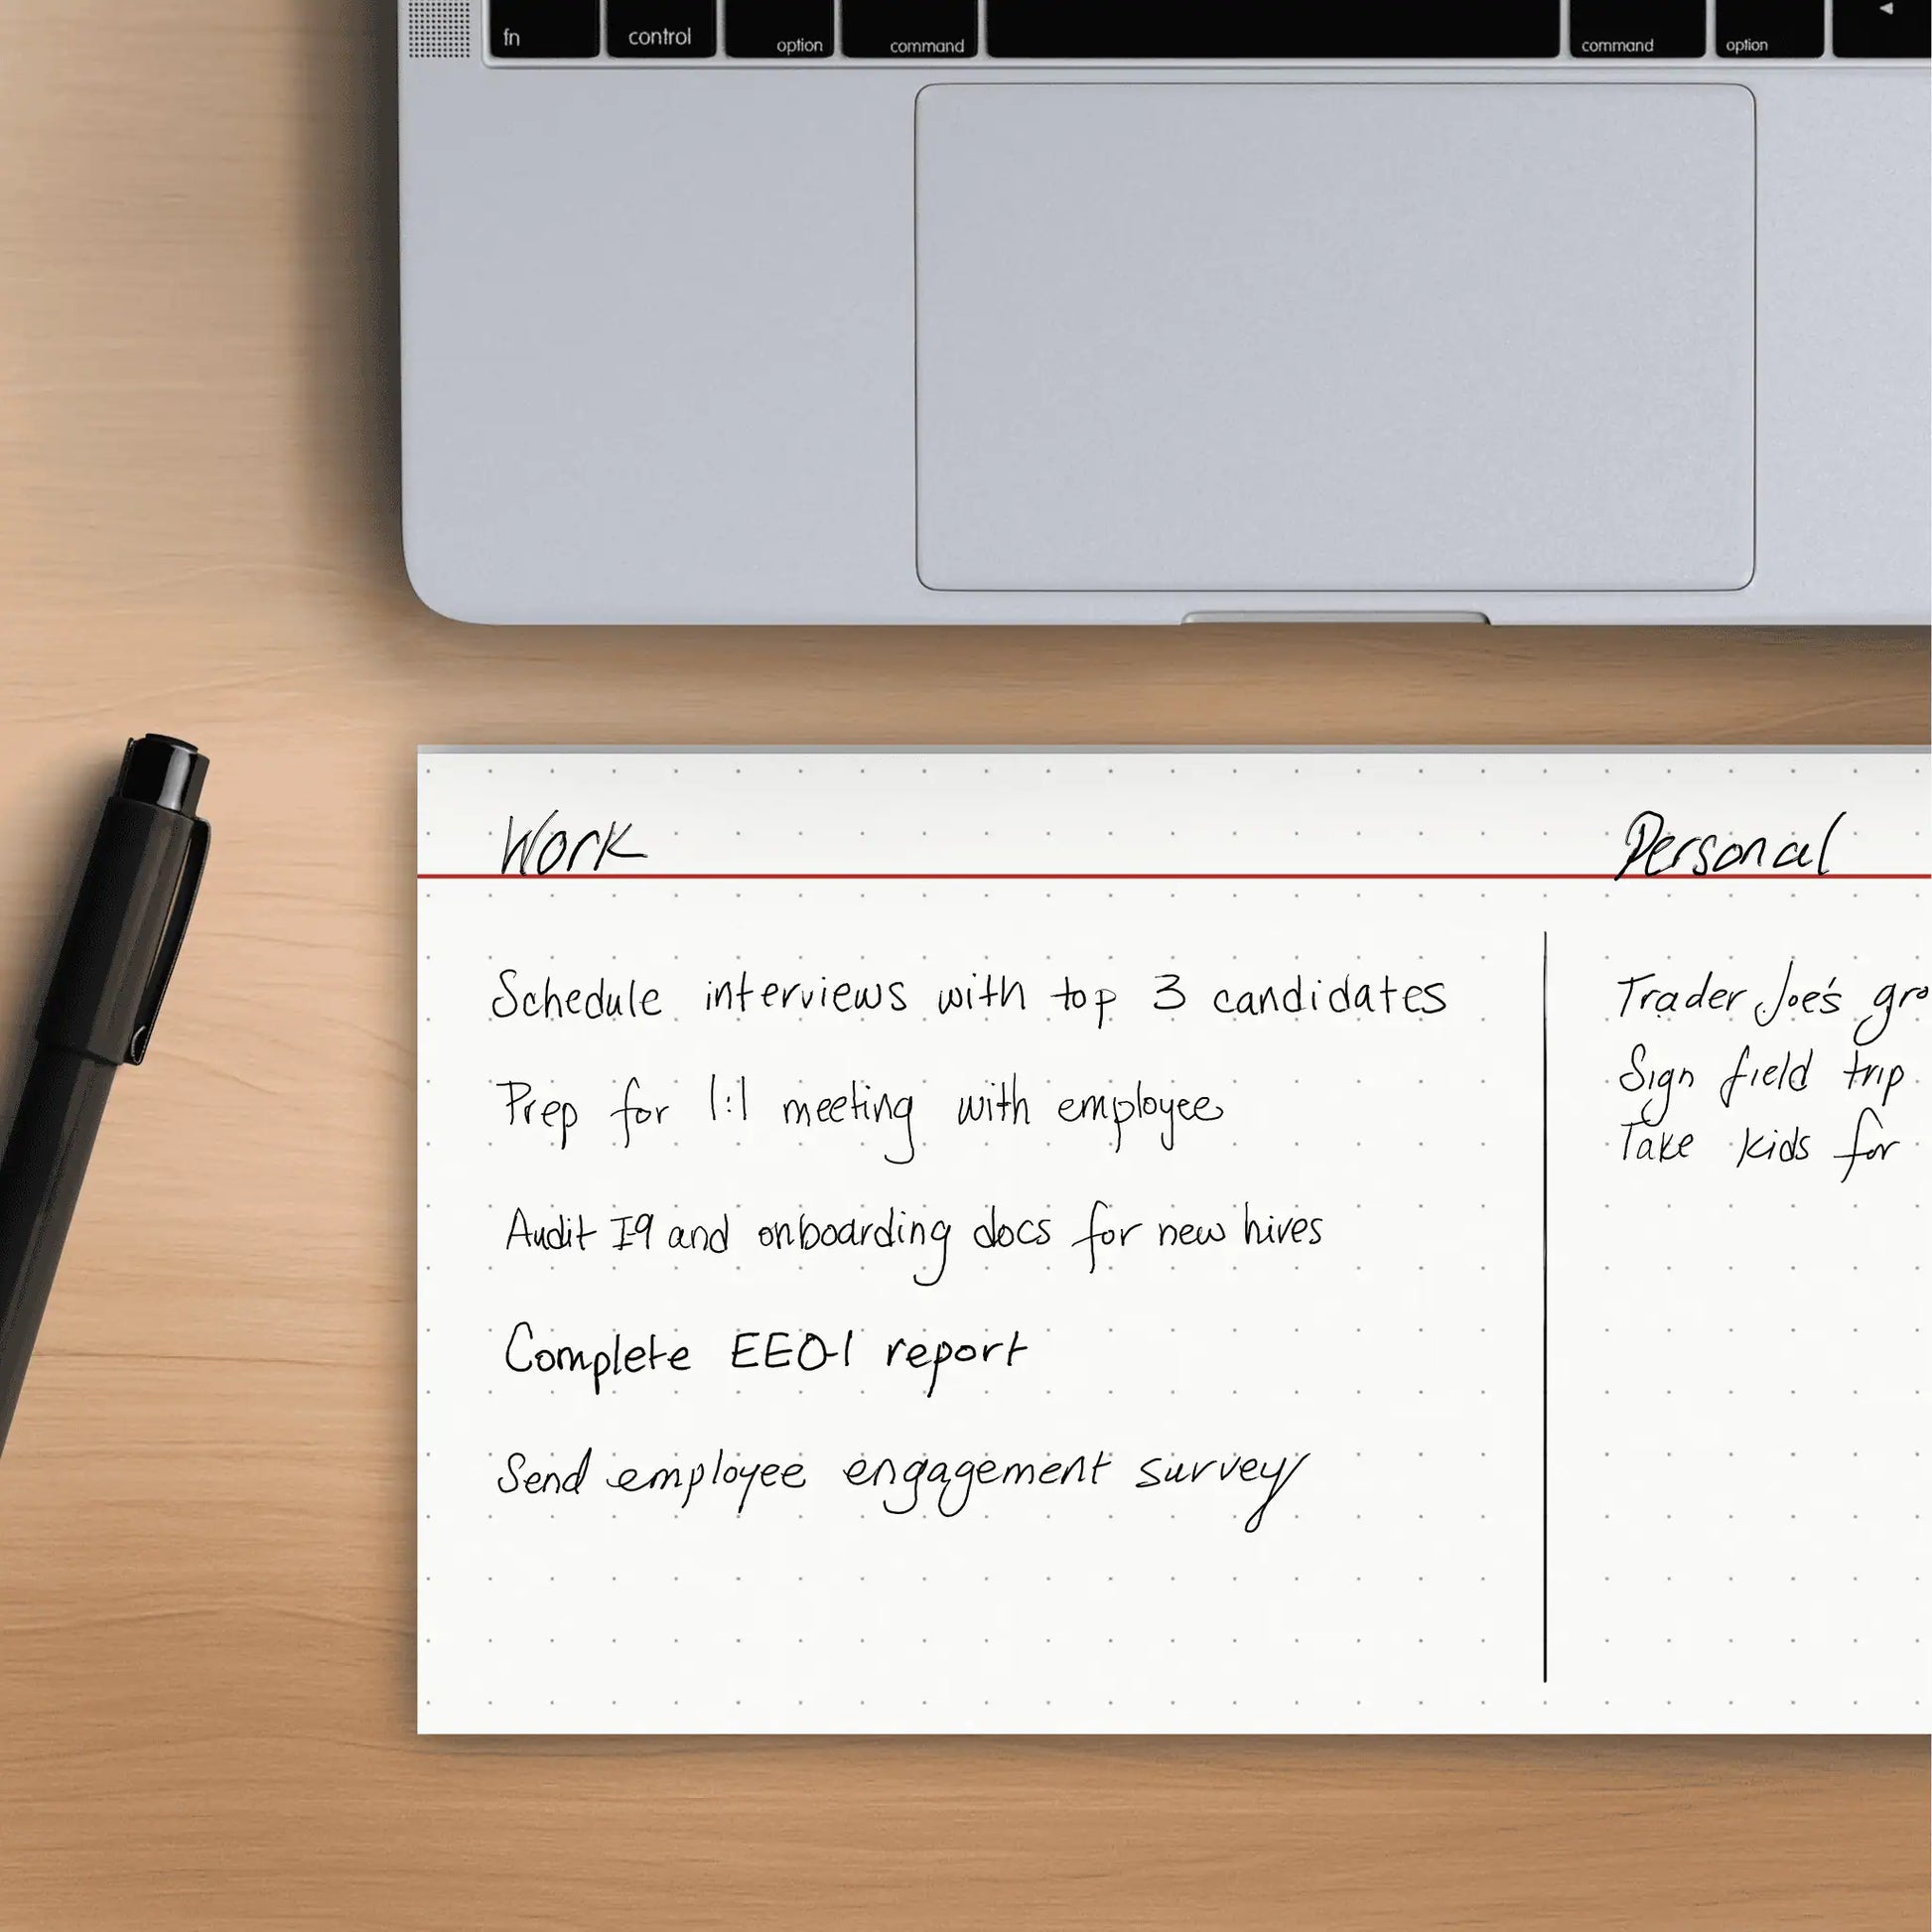 fn control option command command option ◀
Work Personal
Schedule interviews with top 3 candidates
Prep for 1:1 meeting with employee
Audit I-9 and onboarding docs for new hires
Complete EEO-1 report
Send employee engagement survey
Trader Joe's gro
Sign field trip
Take kids for